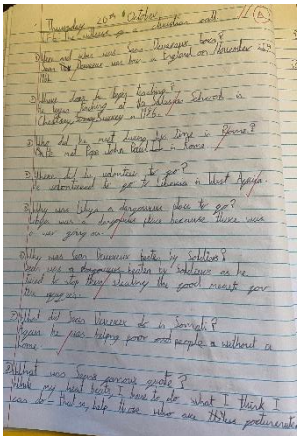 Thursday 20th October
When and where was Sean Devereux born?
Sean Devereux was born in England on November
1964.
Where does he begin teaching?
He began teaching at the Salesian School in
Chertsey Surrey in 1986.
Who did he met during his time in Rome?
He met Pope John Paul in Rome.
Where did he volunteer to go?
He volunteered to go to Liberia in West
Why was a dangerous place to go?
was a dangerous place because there was
a war going on.
Why was Sean Devereux beaten by Soldiers?
Sean was beaten by soldiers as he
tried to stop them stealing the food meant for
the
What did Sean Devereux do in Somali?
Again he was helping poor and people a without a
home.
What was Seans famous quote?
While my heart beats I have to do what I think I
can do - that is, help those who are